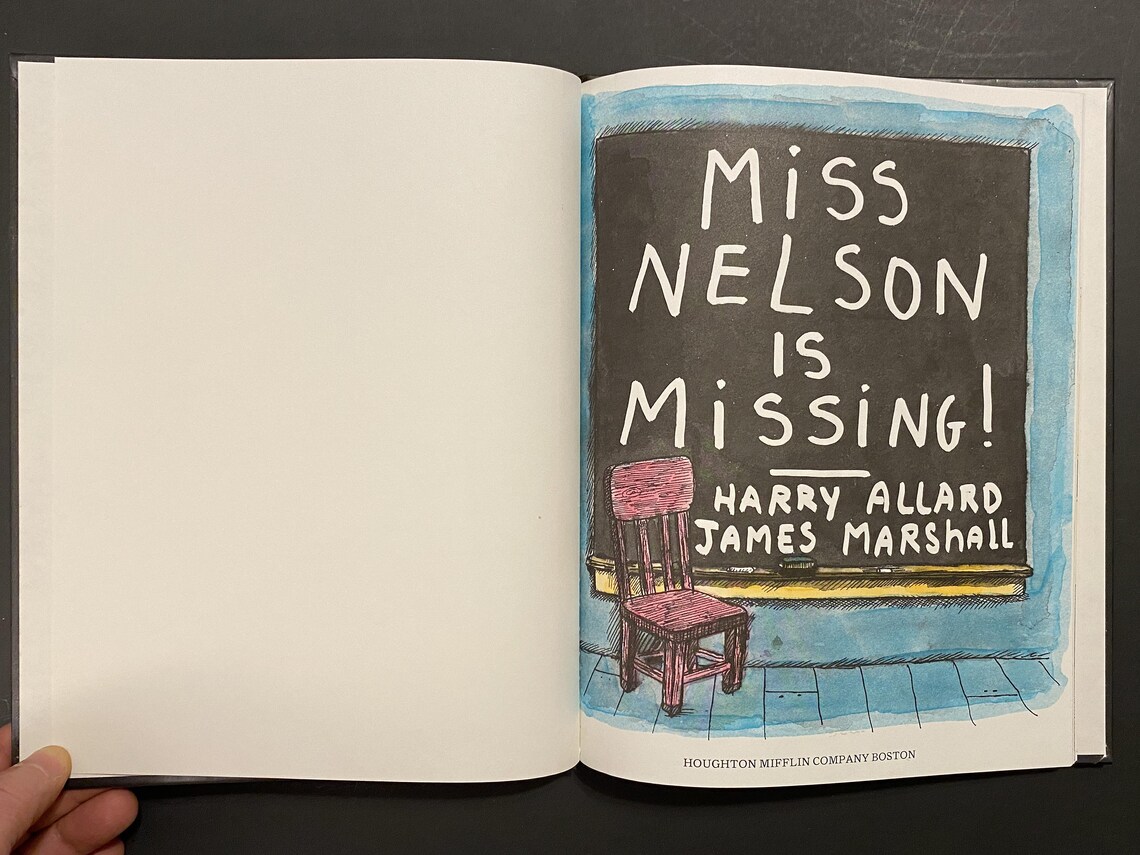 Miss
NELSON
is
Missing!
HARRY ALLARD
JAMES MARShALL
HOUGHTON MIFFLIN COMPANY BOSTON